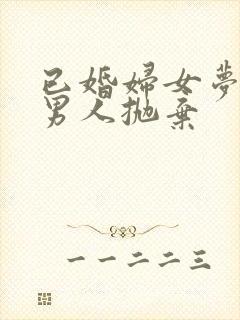 已婚婦女夢
男人拋棄
一一二二三